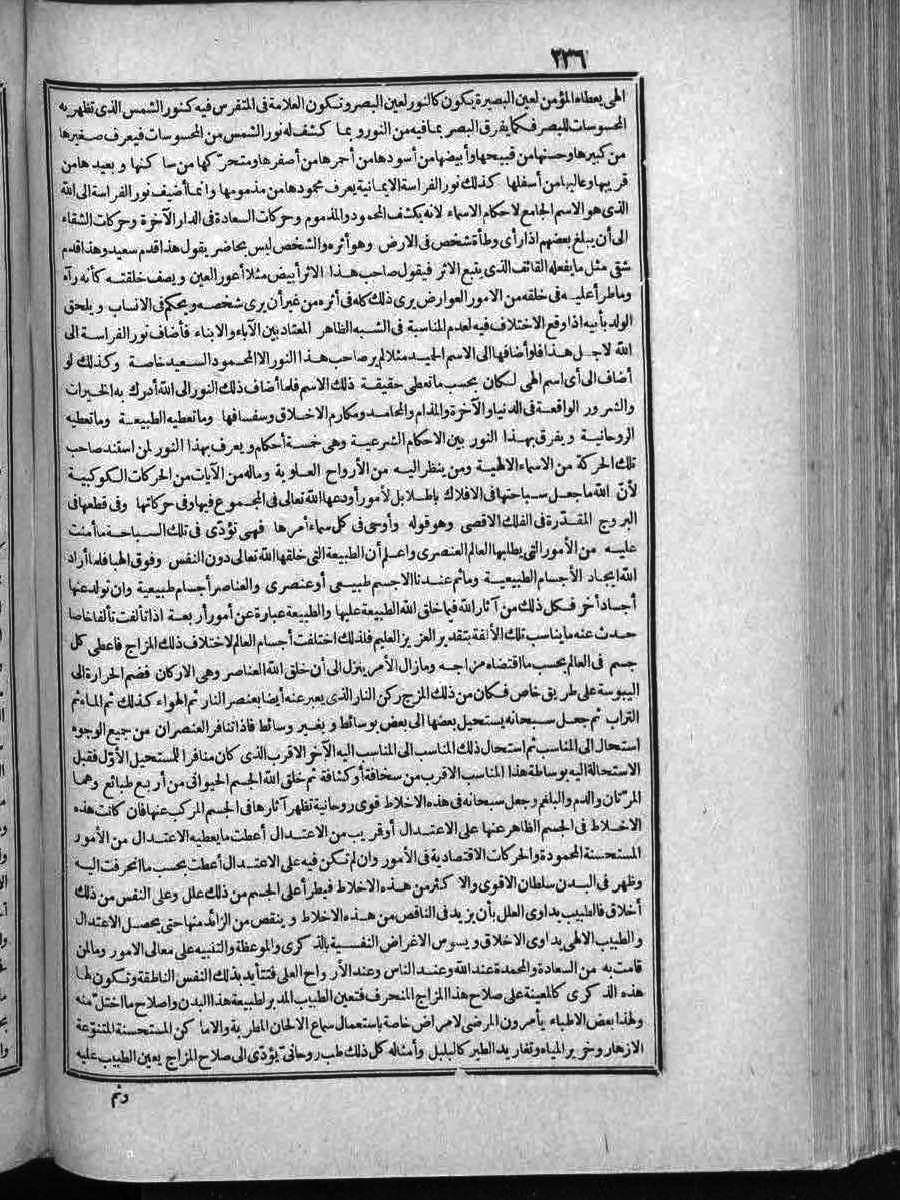 ٢٣٦
الهى يعطاه المؤمن لعين البصيرة يكون كالنور لعين البصر وتكون العلامة فى المتفرس فيه كنور الشمس الذى تظهر به
المحسوسات للبصر فكما يفرق البصر بما فيه من النور وبما كشف له نور الشمس من المحسوسات فيعرف صغيرها
من كبيرها وحسنها من قبيحها وأبيضها من أسودها من أحمرها من أصفرها ومتحرّكها من ساكنها وبعيدها من
قريبها وعاليها من أسفلها كذلك نور الفراسة الايمانية يعرف محمودها من مذمومها وانما أضيف نور الفراسة الى الله
الذى هو الاسم الجامع لاحكام الاسماء لانه يكشف المحمود والمذموم وحركات السعادة فى الدار الآخرة وحركات الشقاء
الى أن يبلغ بعضهم اذا رأى وطأة شخص فى الارض وهو أثره والشخص ليس بحاضر يقول هذا قدم سعيد وهذا قدم
شقى مثل ما يفعله القائف الذى يتبع الاثر فيقول صاحب هذا الاثر أبيض مثلا أعور العين ويصف خلقته كأنه رآه
وما طرأ عليه فى خلقه من الامور العوارض يرى ذلك كله فى أثره من غير أن يرى شخصه ويحكم فى الانساب ويلحق
الولد بأبيه اذا وقع الاختلاف فيه لعدم المناسبة فى الشبه الظاهر المعتاد بين الآباء والابناء فأضاف نور الفراسة الى
الله لاجل هذا فلو أضافها الى الاسم الحميد مثلا لم ير صاحب هذا النور الا المحمود السعيد خاصة وكذلك لو
أضاف الى أى اسم الهى لكان بحسب ما تعطى حقيقة ذلك الاسم فلما أضاف ذلك النور الى الله أدرك به الخيرات
والشرور الواقعة فى الدنيا والآخرة والمذام والمحامد ومكارم الاخلاق وسفسافها وما تعطيه الطبيعة وما تعطيه
الروحانية ويفرق بهذا النور بين الاحكام الشرعية وهى خمسة أحكام ويعرف بهذا النور لمن استند صاحب
تلك الحركة من الاسماء الالهية ومن ينظر اليه من الأرواح العلوية وما له من الآيات من الحركات الكوكبية
لأنّ الله ما جعل سباحتها فى الافلاك باطلا بل لأمور أودعها الله تعالى فى المجموع فيها وفى حركاتها وفى قطعها فى
البروج المقدّرة فى الفلك الاقصى وهو قوله وأوحى فى كل سماء أمرها فهى تؤدّى فى تلك السباحة ما أمنت
عليه من الأمور التى يطلبها العالم العنصرى واعلم أن الطبيعة التى خلقها الله تعالى دون النفس وفوق الهبا فلما أراد
الله ايجاد الأجسام الطبيعية وما ثم عندنا الاجسم طبيعى أو عنصرى والعناصر أجسام طبيعية وان تولد عنها
أجساد أخر فكل ذلك من آثار الله فيما خلق الله الطبيعة عليها والطبيعة عبارة عن أمور أربعة اذا تألفت تألفا خاصا
حدث عنه ما يناسب تلك الألفة بتقدير العزيز العليم فلذلك اختلفت أجسام العالم لاختلاف ذلك المزاج فاعطى كل
جسم فى العالم بحسب ما اقتضاه مزاجه وما زال الأمر يتنزل الى أن خلق الله العناصر وهى الاركان فضم الحرارة الى
اليبوسة على طريق خاص فكان من ذلك المزج ركن النار الذى يعبر عنه أيضا بعنصر النار ثم الهواء كذلك ثم الماء ثم
التراب ثم جعل سبحانه يستحيل بعضها الى بعض بوسائط وبغير وسائط فاذا تنافر العنصران من جميع الوجوه
استحال الى المناسب ثم استحال ذلك المناسب الى المناسب اليه الآخر الاقرب الذى كان منافرا للمستحيل الأوّل فقبل
الاستحالة اليه بوساطة هذا المناسب الاقرب من سخافة أو كثافة ثم خلق الله الجسم الحيوانى من أربع طبائع وهما
المرّتان والدم والبلغم وجعل سبحانه فى هذه الاخلاط قوى روحانية تظهر آثارها فى الجسم المركب عنها فان كانت هذه
الاخلاط فى الجسم الظاهر عنها على الاعتدال أو قريب من الاعتدال أعطت ما يعطيه الاعتدال من الأمور
المستحسنة المحمودة والحركات الاقتصادية فى الأمور وان لم تكن فيه على الاعتدال أعطت بحسب ما انحرفت اليه
وظهر فى البدن سلطان الاقوى والاكثر من هذه الاخلاط فيطرأ على الجسم من ذلك علل وعلى النفس من ذلك
أخلاق فالطبيب يداوى العلل بأن يزيد فى الناقص من هذه الاخلاط وينقص من الزائد منها حتى يحصل الاعتدال
والطبيب الالهى يداوى الاخلاق ويسوس الاغراض النفسية بالذكرى والموعظة والتنبيه على معالى الامور وما لمن
قامت به من السعادة والمحمدة عند الله وعند الناس وعند الأرواح العلى فتتأيد بذلك النفس الناطقة وتكون لها
هذه الذكرى كالمعينة على صلاح هذا المزاج المنحرف فتعين الطبيب المدبر لطبيعة هذا البدن واصلاح ما اختلّ منه
ولهذا بعض الاطباء يأمرون المرضى لامراض خاصة باستعمال سماع الالحان المطربة والاماكن المستحسنة المتنوّعة
الازهار وخرير المياه وتغاريد الطير كالبلبل وأمثاله كل ذلك طب روحانىّ يؤدّى الى صلاح المزاج يعين الطبيب عليه
وثم